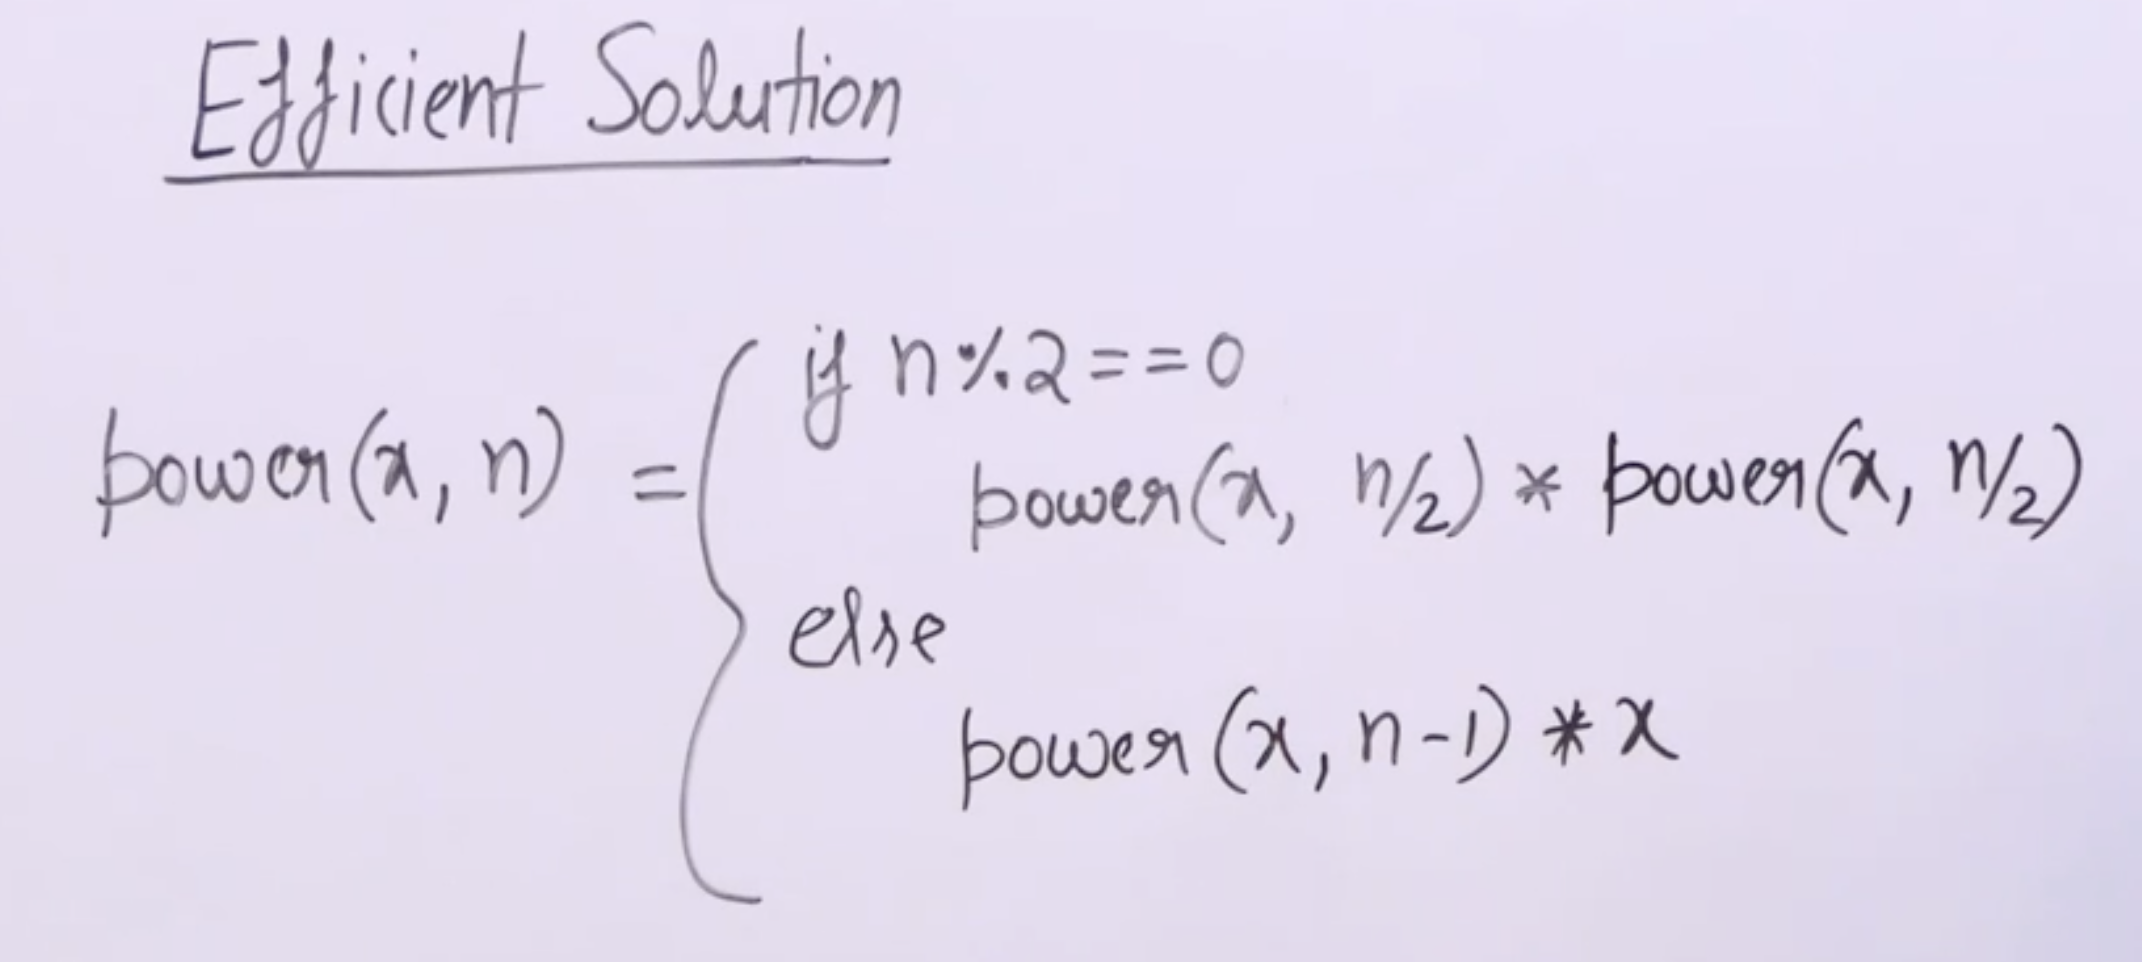 Efficient Solution
if n%2==0
power(x, n) =
power(x, n/2) * power(x, n/2)
else
power(x, n-1) * x